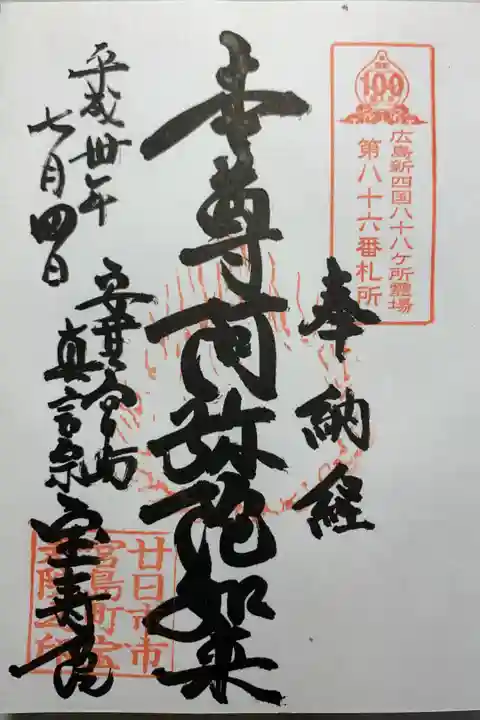 100
広島新四国八十八ケ所霊場
第八十六番札所
奉納経
本尊阿弥陀如来
安芸宮島
真言宗宝寿院
平成卅年
七月四日
廿日市市
宮島町宝
寿院之印